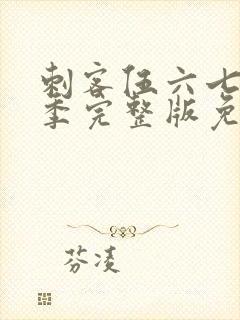 刺客伍六七
季完整版免
芬凌